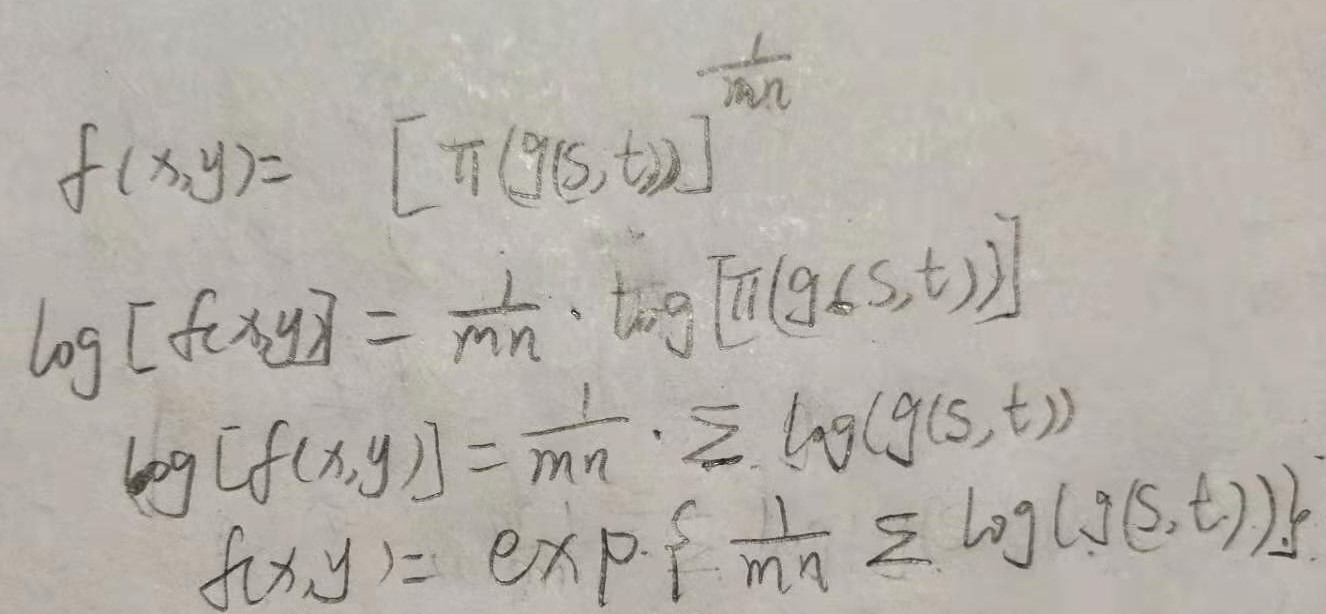 f(x,y)= [π(g(s,t))]^{\frac{1}{mn}}
log[f(x,y)] = \frac{1}{mn} · log[π(g(s,t))]
log[f(x,y)] = \frac{1}{mn} · Σ log(g(s,t))
f(x,y)= exp{\frac{1}{mn} Σ log(g(s,t))}